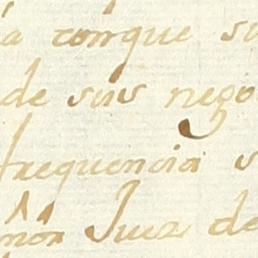 á conque su
de sus nego
frequencia s
Juez de